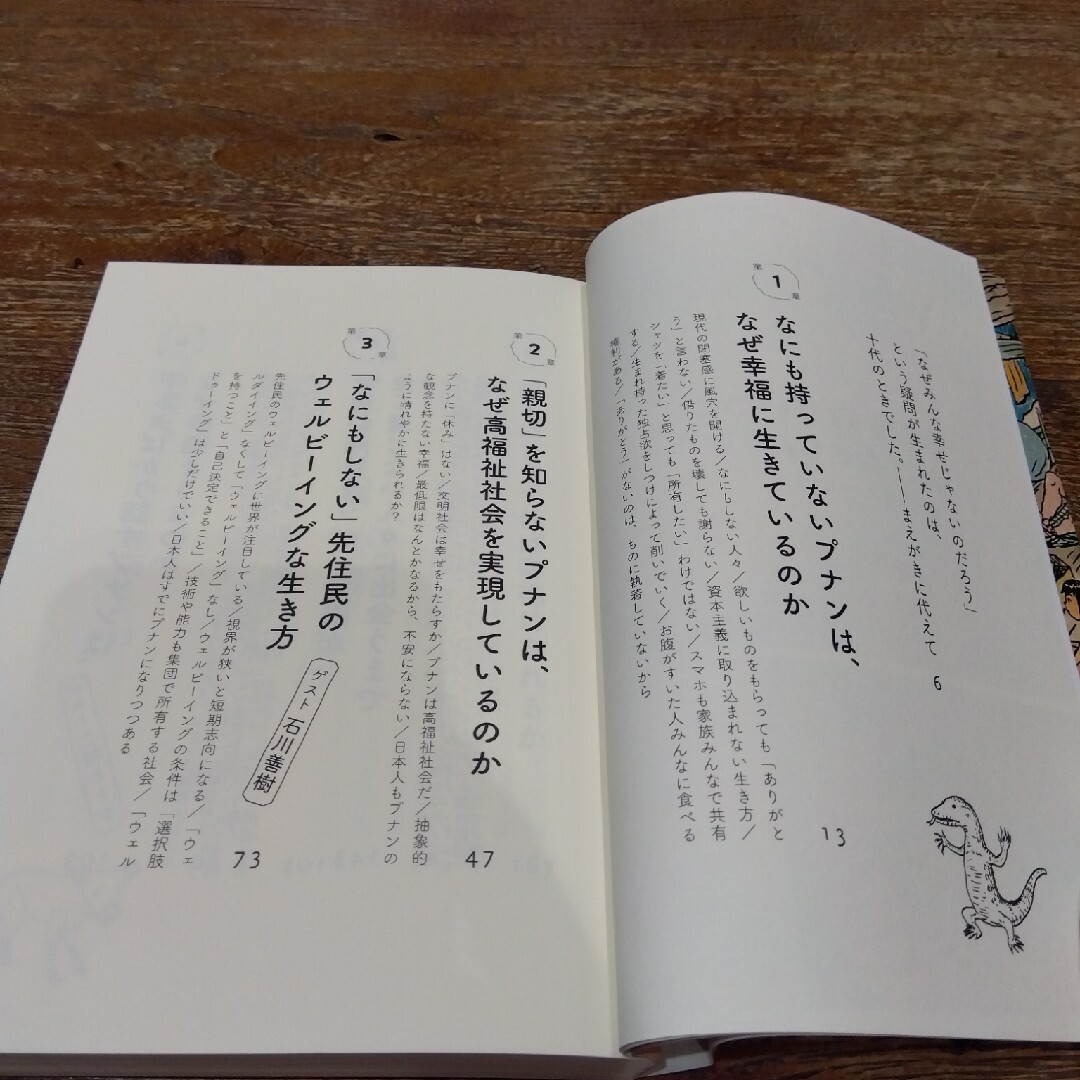 「なぜみんな幸せじゃないのだろう」
という疑問が生まれたのは、
十代のときでした。——まえがきに代えて
6
第1章
なにも持っていないプナンは、
なぜ幸福に生きているのか
13
現代の閉塞感に風穴を開ける/なにもしない人々/欲しいものをもらっても「ありがと
う」と言わない/借りたものを壊しても謝らない/資本主義に取り込まれない生き方/
シャツを「着たい」と思っても「所有したい」わけではない/スマホも家族みんなで共有
する/生まれ持った独占欲をしつけによって削いでいく/お腹がすいた人みんなに食べる
権利がある/「ありがとう」がないのは、ものに執着していないから
第2章
「親切」を知らないプナンは、
なぜ高福祉社会を実現しているのか
47
プナンに「休み」はない/文明社会は幸せをもたらすか/プナンは高福祉社会だ/抽象的
な観念を持たない幸福/最低限はなんとかなるから、不安にならない/日本人もプナンの
ように晴れやかに生きられるか?
第3章
「なにもしない」先住民の
ウェルビーイングな生き方
ゲスト 石川善樹
73
先住民のウェルビーイングに世界が注目している/視界が狭いと短期志向になる/「ウェ
ルダイイング」なくして「ウェルビーイング」なし/ウェルビーイングの条件は「選択肢
を持つこと」と「自己決定できること」/技術や能力も集団で所有する社会/「ウェル
ドゥーイング」は少しだけでいい/日本人はすでにプナンになりつつある